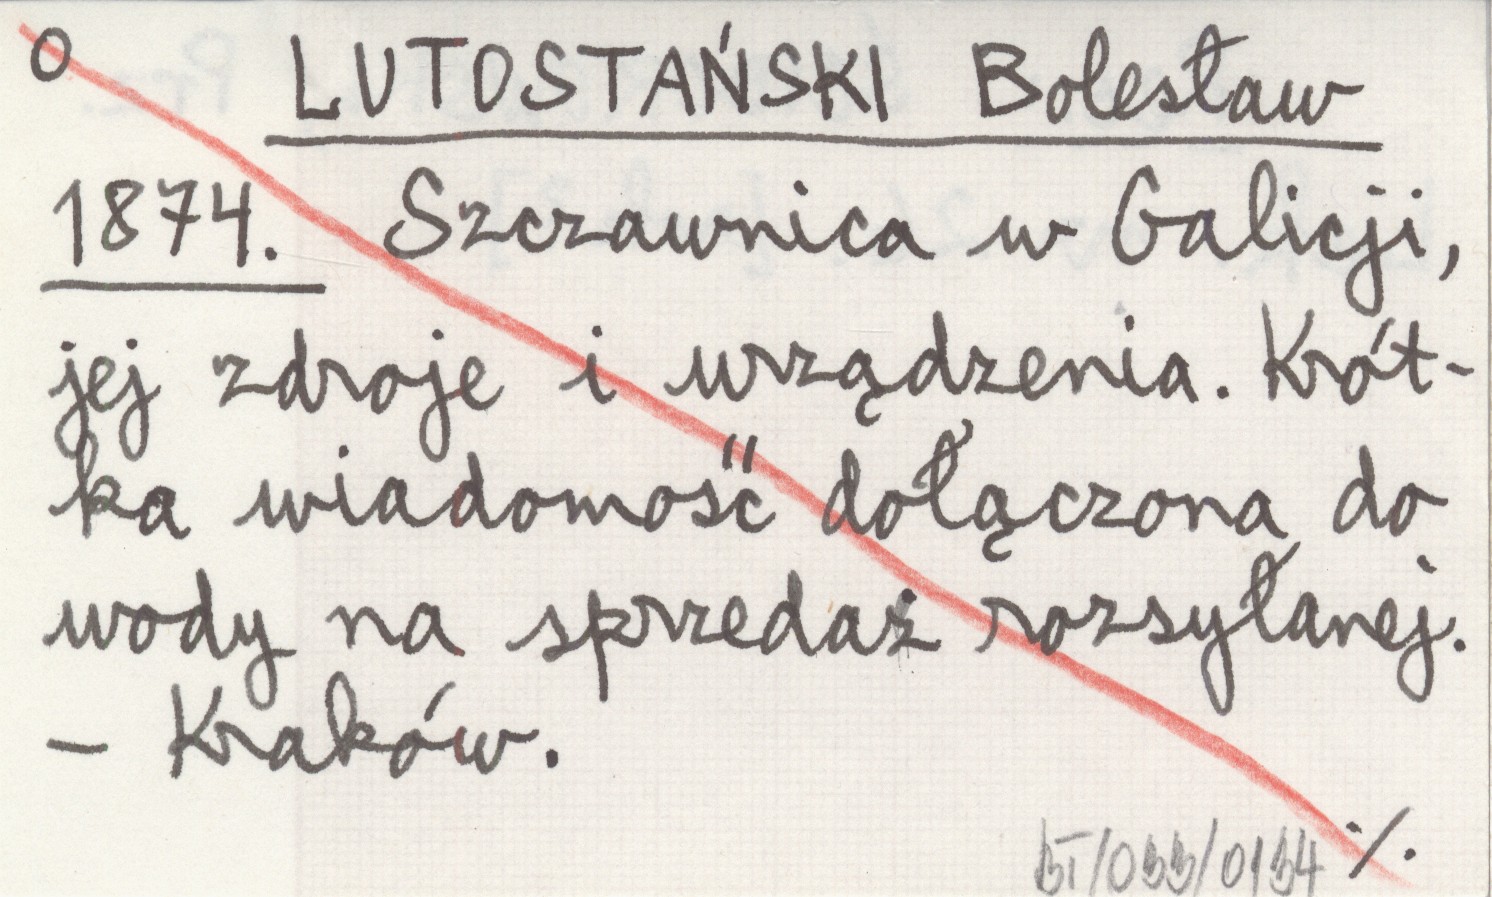 O LUTOSTAŃSKI Bolesław
1874. Szczawnica w Galicji,
jej zdroje i urządzenia. Krót-
ka wiadomość dołączona do
wody na sprzedaż rozsyłanej.
– Kraków.
./.